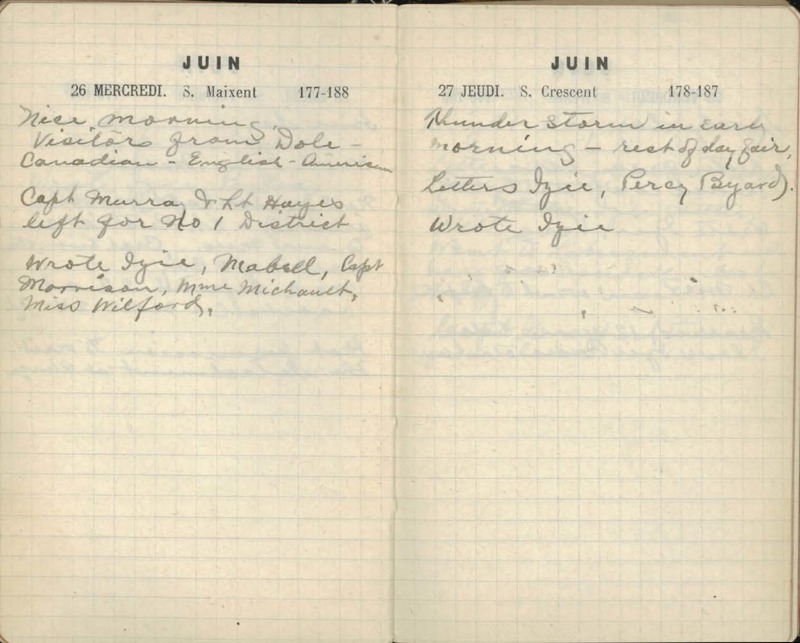 JUIN
26 MERCREDI. S. Maixent 177-188
Nice morning
Visitors from Dole -
Canadian - English - American
Capt Murray & Lt Hayes
left for No 1 District
Wrote Izie, Mabell, Capt
Morrison, Mme Michault,
Miss Wilford.
JUIN
27 JEUDI. S. Crescent 178-187
Thunder Storm in early
morning - rest of day fair.
Letters Izie, Percy Byard).
Wrote Izie